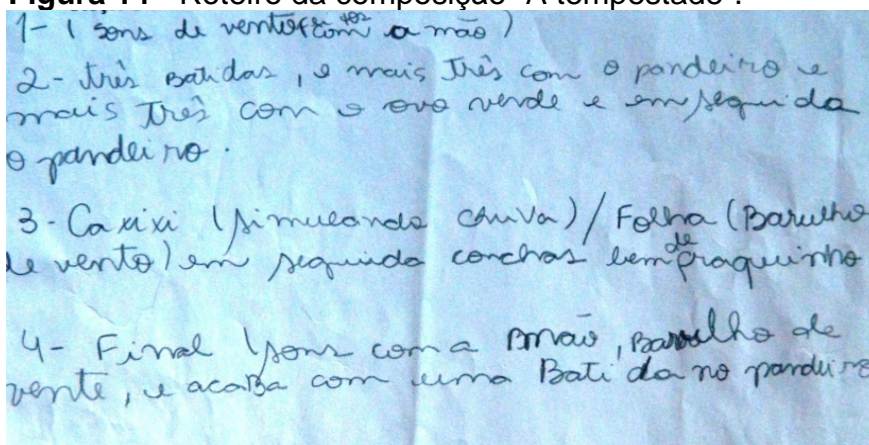 Figura 14 - Roteiro da composição "A tempestade".
1- (sons de vento com a mão)
2- três Batidas, e mais três com o pandeiro e
mais três com o ovo verde e em seguida
o pandeiro.
3- Caxixi (simulando chuva) / Folha (Barulho
de vento) em seguida conchas bem de fraquinho
4- Final (sons com a mão, Barulho de
vento, e acaBa com uma Batida no pandeiro